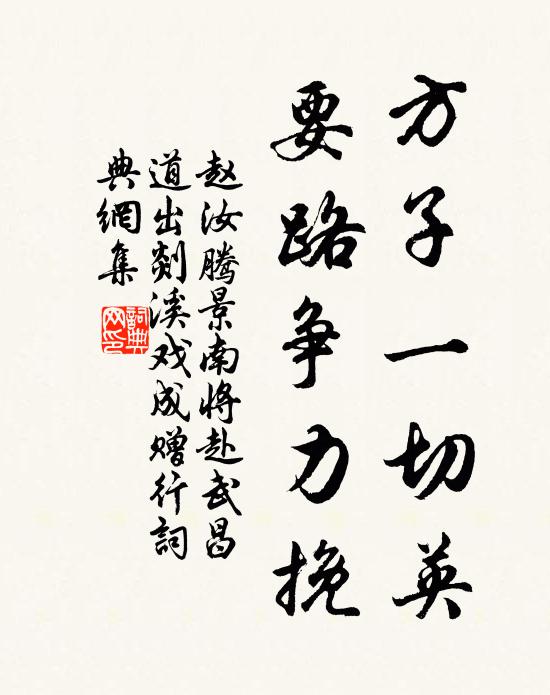 方子一切英
要路争力挽
赵汝腾景南将赴武昌
道出剡溪戏成赠行詞
典網集
詞典网印